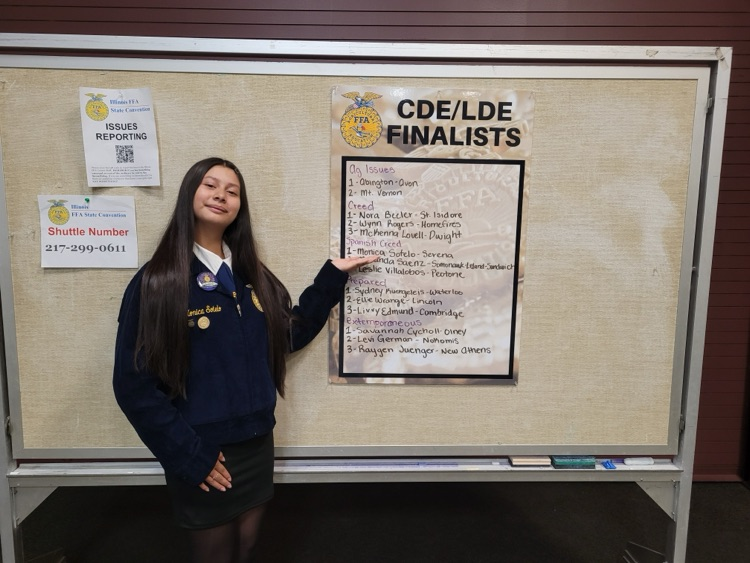 Illinois FFA
State Convention
ISSUES
REPORTING
Illinois
FFA State Convention
Shuttle Number
217-299-0611
FFA
CDE/LDE
FINALISTS
Ag Issues
1- Abington-Avon
2- Mt. Vernon
Creed
1- Nora Beeler - St. Isidore
2- Wynn Rogers - Homefires
3- McKenna Lovell - Dwight
Spanish Creed
1- Monica Sotelo - Serena
Saenz - Somonauk-Leland-Sandwich
Leslie Villalobos - Peotone
1- Sydney - Waterloo
2- Ellie Wrange - Lincoln
3- Livvy Edmund - Cambridge
Extemporaneous
1- Savannah Cycholl - Olney
2- Levi German - Nokomis
3- Raygen Juenger - New Athens
Monica Sotelo